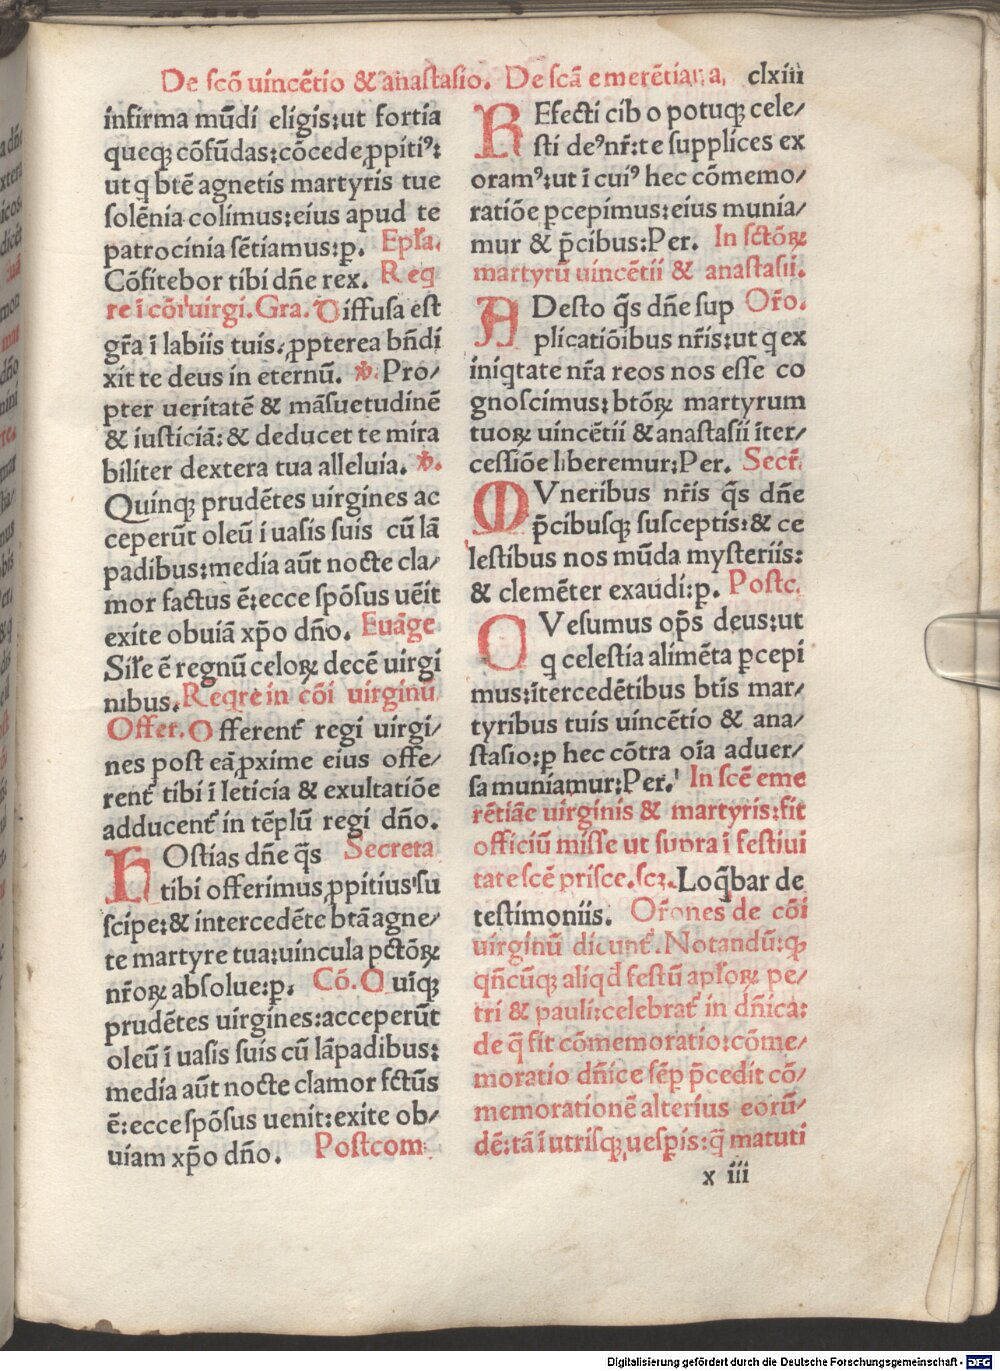 De scō uincētio & anastasio. De scā emerētiana, clxiii
infirma mūdi eligis:ut fortia
queqꝫ cōfūdas:cōcede ꝓpitiꝰ:
ut q btē agnetis martyris tue
solēnia colimus:eius apud te
patrocinia sētiamus:p. Epła.
Cōfitebor tibi dñe rex. Req
re ī cōi uirgi. Gra. Diffusa est
gřa ī labiis tuis.ꝓpterea bñdi
xit te deus in eternū. ℣. Pro/
pter ueritatē & māsuetudinē
& iusticiā:& deducet te mira
biliter dextera tua alleluia. ℣.
Quinqꝫ prudētes uirgines ac
ceperūt oleū i uasis suis cū lā
padibus:media aūt nocte cla/
mor factus ē:ecce spōsus uēit
exite obuiā xp̄o dño. Euāge
Sil'e ē regnū celoꝝ decē uirgi
nibus. Reqre in cōi uirginū
Offer. Offerent' regi uirgi/
nes post eā ꝓxime eius offe/
rent' tibi ī leticia & exultatiōe
adducent' in tēplū regi dño.
HOstias dñe q̄s Secreta
tibi offerimus ꝓpitius su
scipe:& intercedēte btā agne/
te martyre tua:uincula pctōꝝ
nr̄oꝝ absolue:p. Cō. Quiqꝫ
prudētes uirgines:acceperūt
oleū i uasis suis cū lāpadibus:
media aūt nocte clamor fctūs
ē:ecce spōsus uenit:exite ob/
uiam xp̄o dño. Postcom
REfecti cibo potuqꝫ cele/
sti deꝰ nr̄:te supplices ex
oramꝰ:ut ī cuiꝰ hec cōmemo/
ratiōe pcepimus:eius munia/
mur & p̄cibus:Per. In sctōꝝ
martyrū uincētii & anastasii.
ADesto q̄s dñe sup Oŕo.
plicatiōibus nr̄is:ut q ex
iniqtate nr̄a reos nos esse co
gnoscimus:btōꝝ martyrum
tuoꝝ uincētii & anastasii īter/
cessiōe liberemur:Per. Secŕ.
MVneribus nr̄is q̄s dñe
p̄cibusqꝫ susceptis:& ce
lestibus nos mūda mysteriis:
& clemēter exaudi:p. Postc.
QVesumus op̄s deus:ut
q celestia alimēta ꝑcepi
mus:ītercedētibus btīs mar/
tyribus tuis uincētio & ana/
stasio:ꝑ hec cōtra oīa aduer/
sa muniamur:Per. In scē eme
rētiāe uirginis & martyris:fit
officiū misse ut supra ī festiui
tate scē prisce.scꝫ. Loq̄bar de
testimoniis. Oŕones de cōi
uirginū dicunt'. Notandū:qꝙ
qñcūqꝫ aliqd festū apłoꝝ pe/
tri & pauli:celebrat' in dñica:
de q̄ fit cōmemoratio:cōme/
moratio dñice sēp p̄cedit cō/
memorationē alterius eorū/
dē:tā ī utrisqꝫ uesꝑis:q̄ matuti
x iii
Digitalisierung gefördert durch die Deutsche Forschungsgemeinschaft - DFG